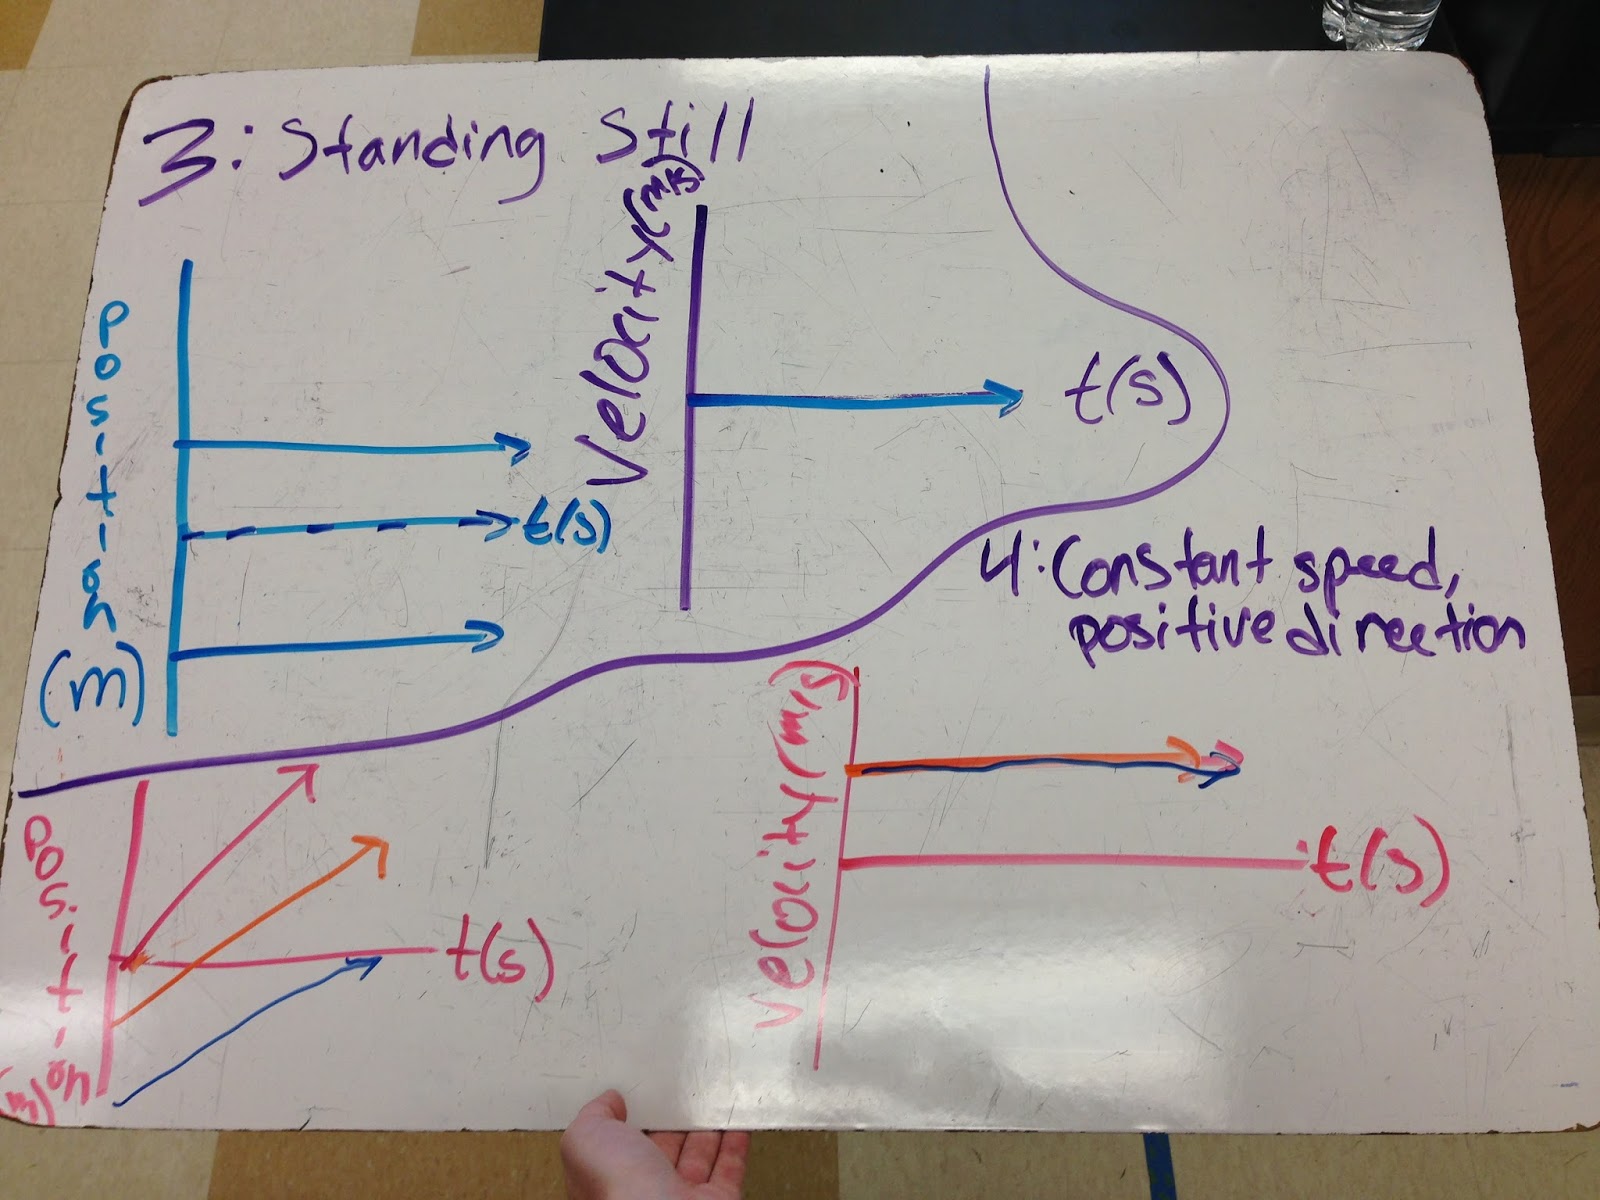 3: Standing Still
Position (m)
t(s)
Velocity (m/s)
t(s)
4: Constant speed,
positive direction
Position (m)
t(s)
Velocity (m/s)
t(s)